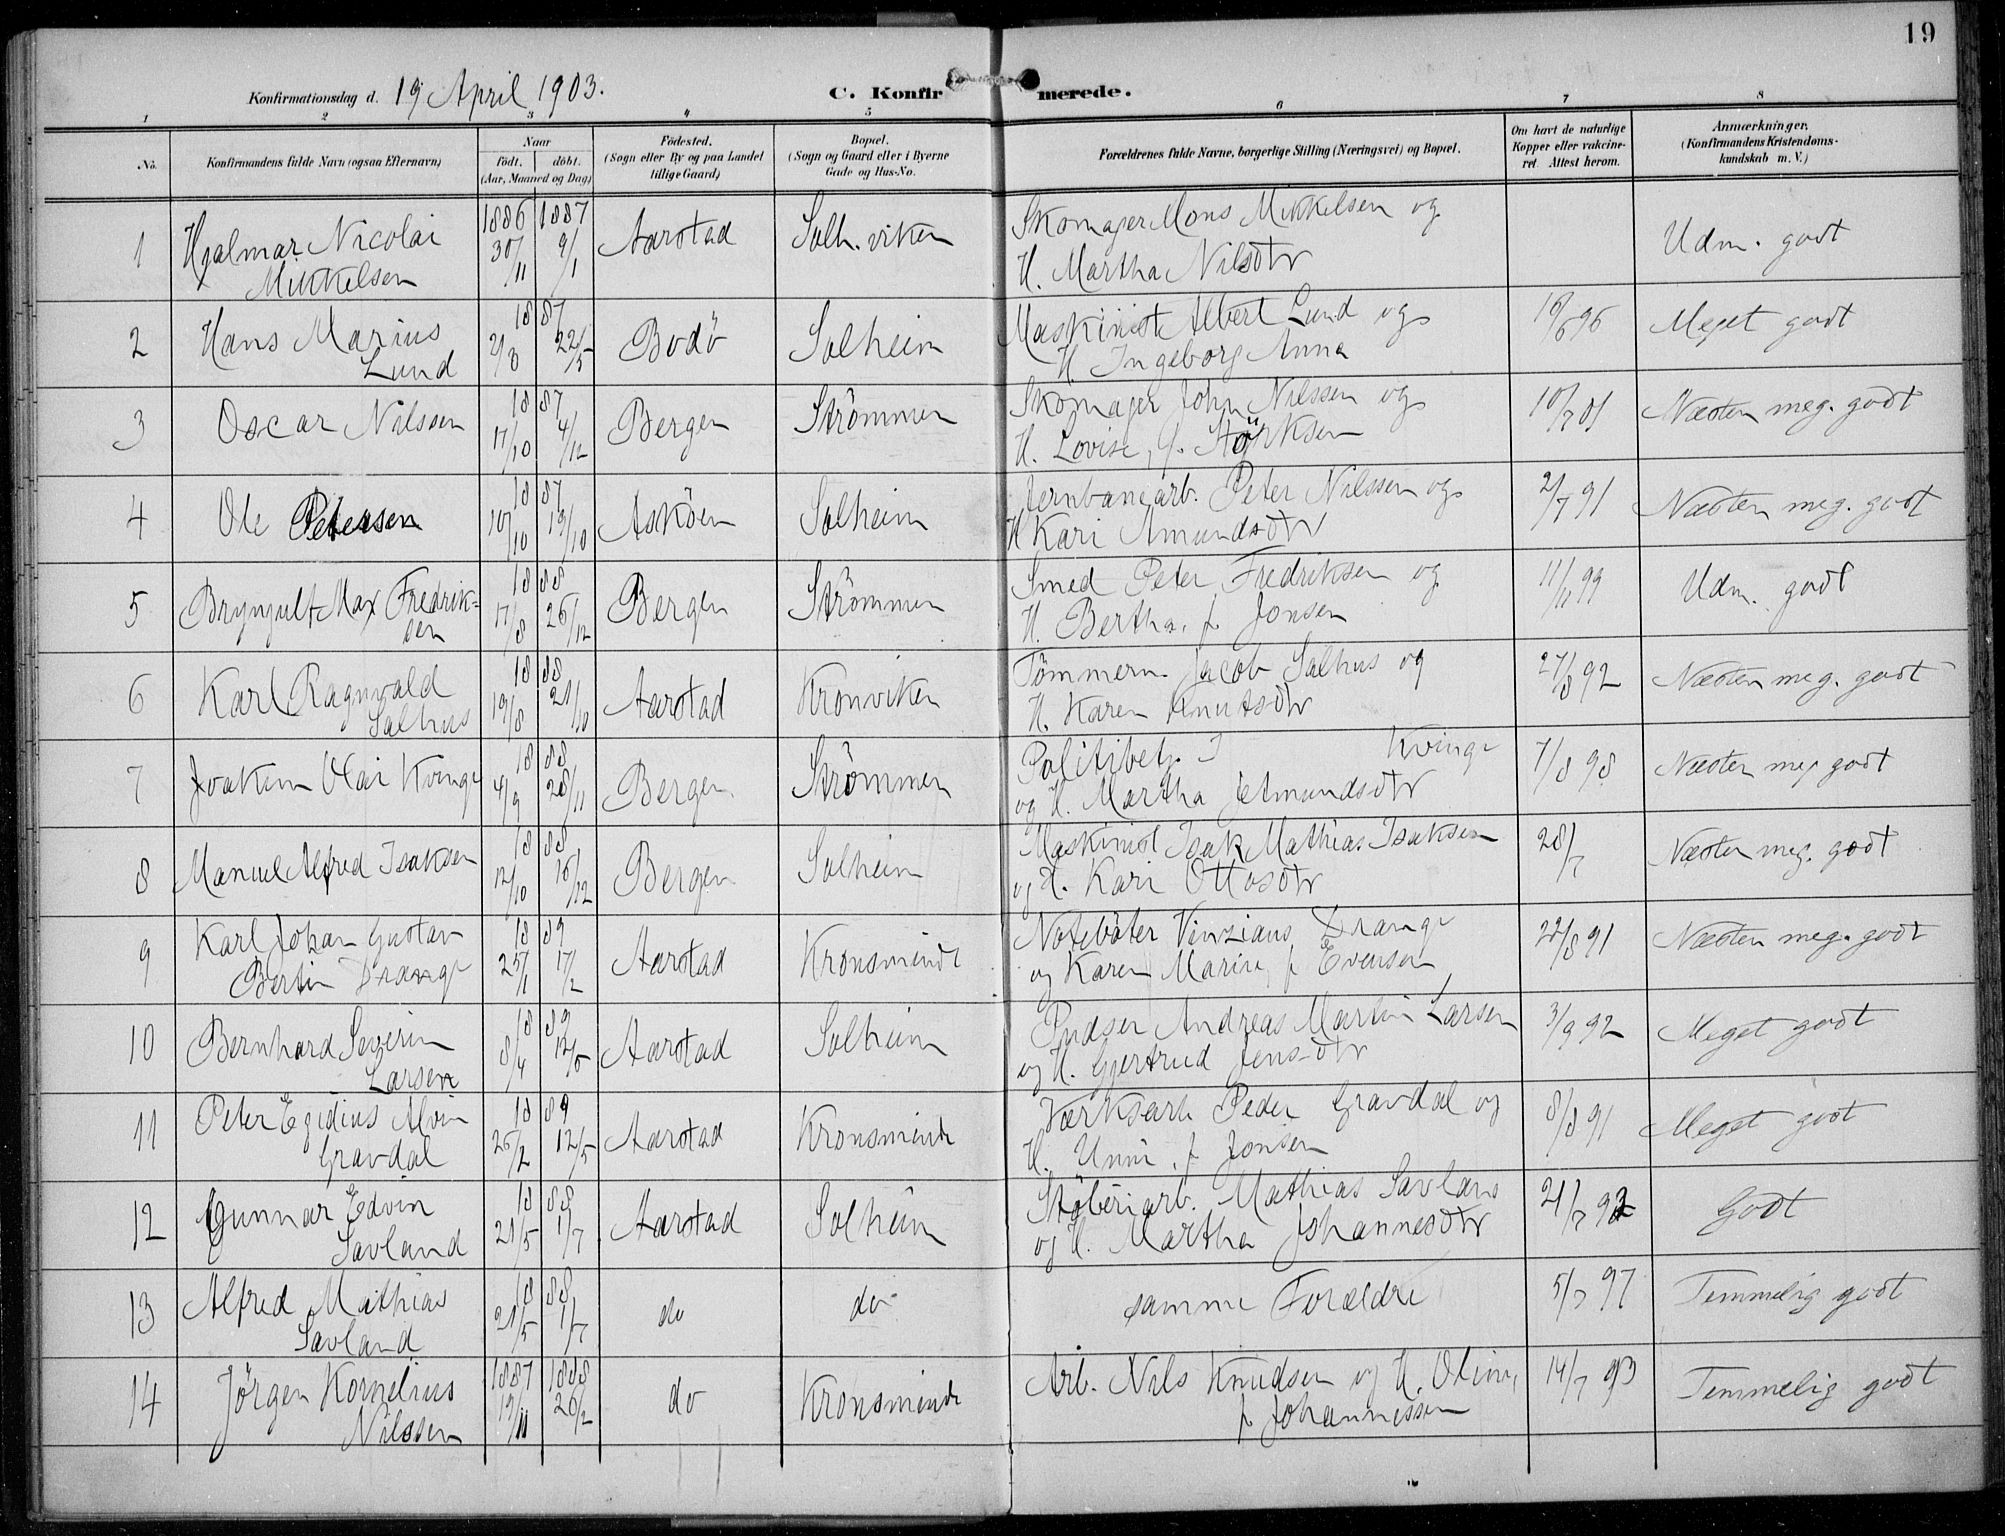 19
Konfirmationsdag d. 19 April 1903.
C. Konfirmerede.
1 2 3 4 5 6 7 8
No.
Konfirmandens fulde Navn (ogsaa Efternavn)
Naar
födt. döbt.
(Aar, Maaned og Dag)
Födested.
(Sogn eller By og paa Landet
tillige Gaard)
Bopæl.
(Sogn og Gaard eller i Byerne
Gade og Hus-No.
Forældrenes fulde Navne, borgerlige Stilling (Næringsvei) og Bopæl.
Om havt de naturlige
Kopper eller vakcine-
ret. Attest herom.
Anmærkninger.
(Konfirmandens Kristendoms-
kundskab m. V.)
1 Hjalmar Nicolai
Mikkelsen
1886 1887
30/11 9/1
Aarstad
Solh. viken
Skomager Mons Mikkelsen og
H. Martha Nilsdtr
Udm. godt
2 Hans Marius
Lund
18 87
2/3 22/5
Bodö
Solheim
Maskinist Albert Lund og
H. Ingeborg Anna
16/6 96
Meget godt
3 Oscar Nilssen
18 87
17/10 4/12
Bergen
Strömmen
Skomager John Nilssen og
H. Lovise, f. Störksen
10/7 01
Næsten meg. godt
4 Ole Petersen
18 87
10/10 19/10
Asköen
Solheim
Jernbanearb. Peter Nilssen og
H Kari Amundsdtr
2/7 91
Næsten meg. godt
5 Brynjulf Max Fredrik=
sen
18 88
17/8 26/12
Bergen
Strömmen
Smed Peter Fredriksen og
H. Bertha, f. Jonsen
11/11 99
Udm. godt
6 Karl Ragnvald
Salhus
18 88
19/8 21/10
Aarstad
Kronviken
Tömmerm. Jacob Salhus og
H. Karen Knutsdtr
27/8 92
Næsten meg. godt
7 Joakim Olai Kvinge
18 88
4/9 28/11
Bergen
Strömmen
Politibetj. J Kvinge
og H. Martha Jetmundsdtr
7/8 98
Næsten meg godt
8 Manuel Alfred Isaksen
18 88
12/10 16/12
Bergen
Solheim
Maskinist Isak Mathias Isaksen
og H. Kari Ottosdtr
28/7
Næsten meg. godt
9 Karl Johan Gustav
Bertin Drange
18 89
25/1 17/2
Aarstad
Kronsminde
Noteböter Vinzians Drange
og Karen Marie, f Evensen
22/8 91
Næsten meg. godt
10 Bernhard Severin
Larsen
18 89
8/4 12/5
Aarstad
Solheim
Pudser Andreas Martin Larsen
og H. Gjertrud Jensdtr
3/9 92
Meget godt
11 Peter Egidius Alvin
Gravdal
18 89
26/2 12/5
Aarstad
Kronsminde
Værksarb Peder Gravdal og
H. Unni, f Jonsen
8/8 91
Meget godt
12 Gunnar Edvin
Savland
18 88
21/5 1/7
Aarstad
Solheim
Stöberiarb. Mathias Savland
og H. Martha Johannesdtr
21/7 92
Godt
13 Alfred Mathias
Savland
18 88
21/5 1/7
do
do
samme Forældre
5/7 97
Temmelig godt
14 Jörgen Kornelius
Nilssen
1887 1888
19/11 26/2
do
Kronsminde
Arb. Nils Knudsen og H. Oline,
f Johannessen
14/7 93
Temmelig godt